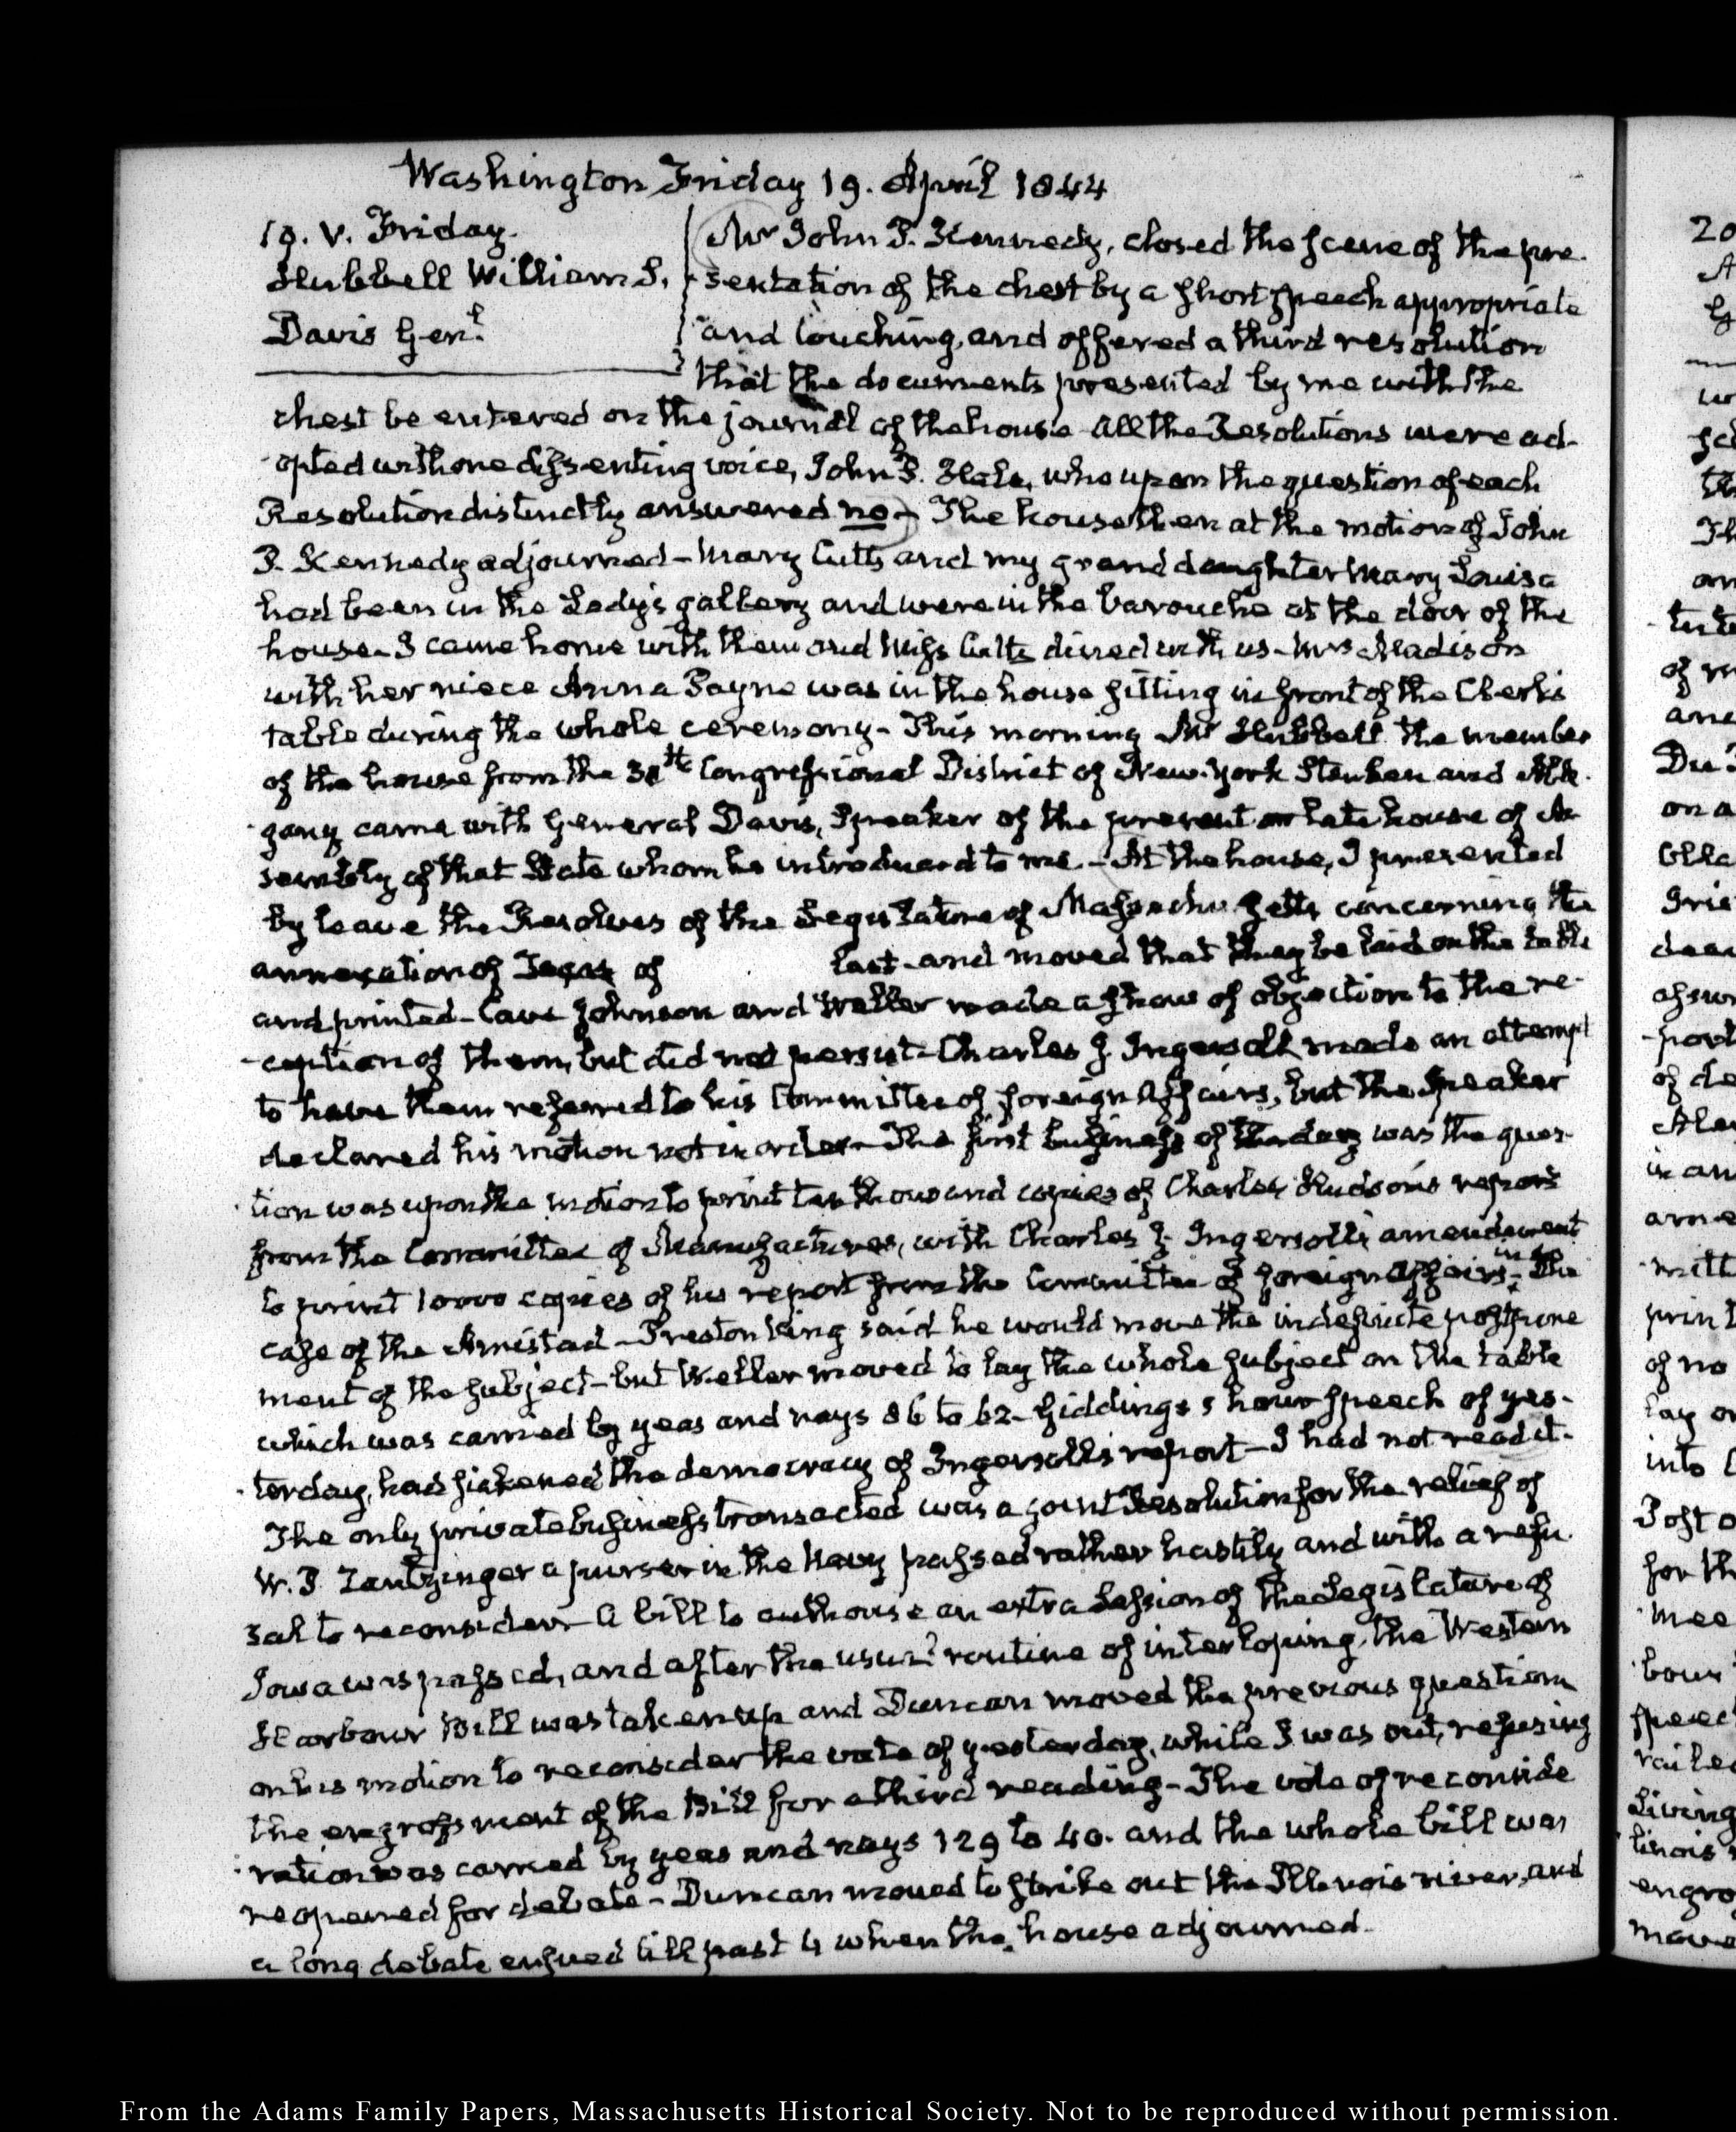 Washington Friday 19. April 1844
19. V. Friday.
Hubbell William S.
Davis Genl.
Mr John P. Kennedy, closed the scene of the pre-
sentation of the chest by a short speech appropriate
and touching, and offered a third resolution
that the documents presented by me with the
chest be entered on the journal of the house All the Resolutions were ad-
opted with one dissenting voice, John P. Hale, who upon the question of each
Resolution distinctly answered no - The house then at the motion of John
P. Kennedy adjourned - Mary Cutts and my grand daughter Mary Louisa
had been in the Lady's gallery and were in the barouche at the door of the
house. I came home with them and Miss Cutts dined with us - Mrs Madison
with her niece Anna Payne was in the house sitting in front of the Clerk's
table during the whole ceremony - This morning Mr Hubbell the member
of the house from the 30th Congressional District of New-York Steuben and Alle-
gany came with General Davis, Speaker of the present or late house of As-
sembly of that State whom he introduced to me. - At the house, I presented
by leave the Resolves of the Legislature of Massachusetts concerning the
annexation of Texas of last - and moved that they be laid on the table
and printed - Cave Johnson and Weller made a show of objection to the re-
ception of them, but did not persist - Charles J. Ingersoll made an attempt
to have them referred to his Committee of foreign Affairs, but the Speaker
declared his motion not in order - The first business of the day was the ques-
tion was upon the motion to print ten thousand copies of Charles Hudson's report
from the Committee of Manufactures, with Charles J. Ingersoll's amendment
to print 10000 copies of his report from the Committee of foreign Affairs, in the
case of the Amistad - Preston King said he would move the indefinite postpone
ment of the subject - but Weller moved to lay the whole subject on the table
which was carried by yeas and nays 86 to 62 - Giddings's hour speech of yes-
terday, had sickened the democracy of Ingersoll's report - I had not read it -
The only private business transacted was a joint Resolution for the relief of
W. P. Zantzinger a purser in the Navy passed rather hastily and with a refu-
sal to reconsider - A bill to authorise an extra Session of the Legislature of
Iowa was passed, and after the usual routine of interloping, the Western
Harbour Bill was taken up and Duncan moved the previous question
on his motion to reconsider the vote of yesterday, while I was out, refusing
the engrossment of the Bill for a third reading - The vote of reconside
ration was carried by yeas and nays 129 to 40. and the whole bill was
reopened for debate - Duncan moved to strike out the Illinois river, and
a long debate ensued till past 4 when the house adjourned.
From the Adams Family Papers, Massachusetts Historical Society. Not to be reproduced without permission.